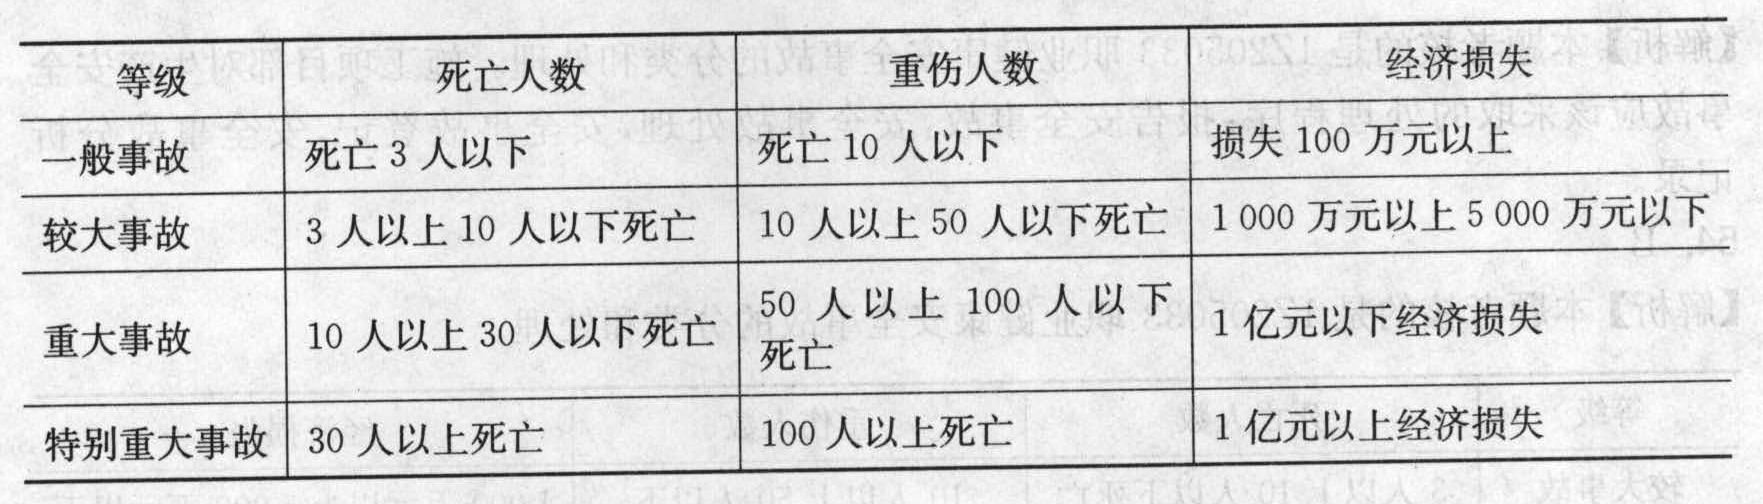 等级 死亡人数 重伤人数 经济损失
一般事故 死亡 3 人以下 死亡 10 人以下 损失 100 万元以上
较大事故 3 人以上 10 人以下死亡 10 人以上 50 人以下死亡 1 000 万元以上 5 000 万元以下
重大事故 10 人以上 30 人以下死亡 50 人以上 100 人以下 1 亿元以下经济损失
死亡
特别重大事故 30 人以上死亡 100 人以上死亡 1 亿元以上经济损失